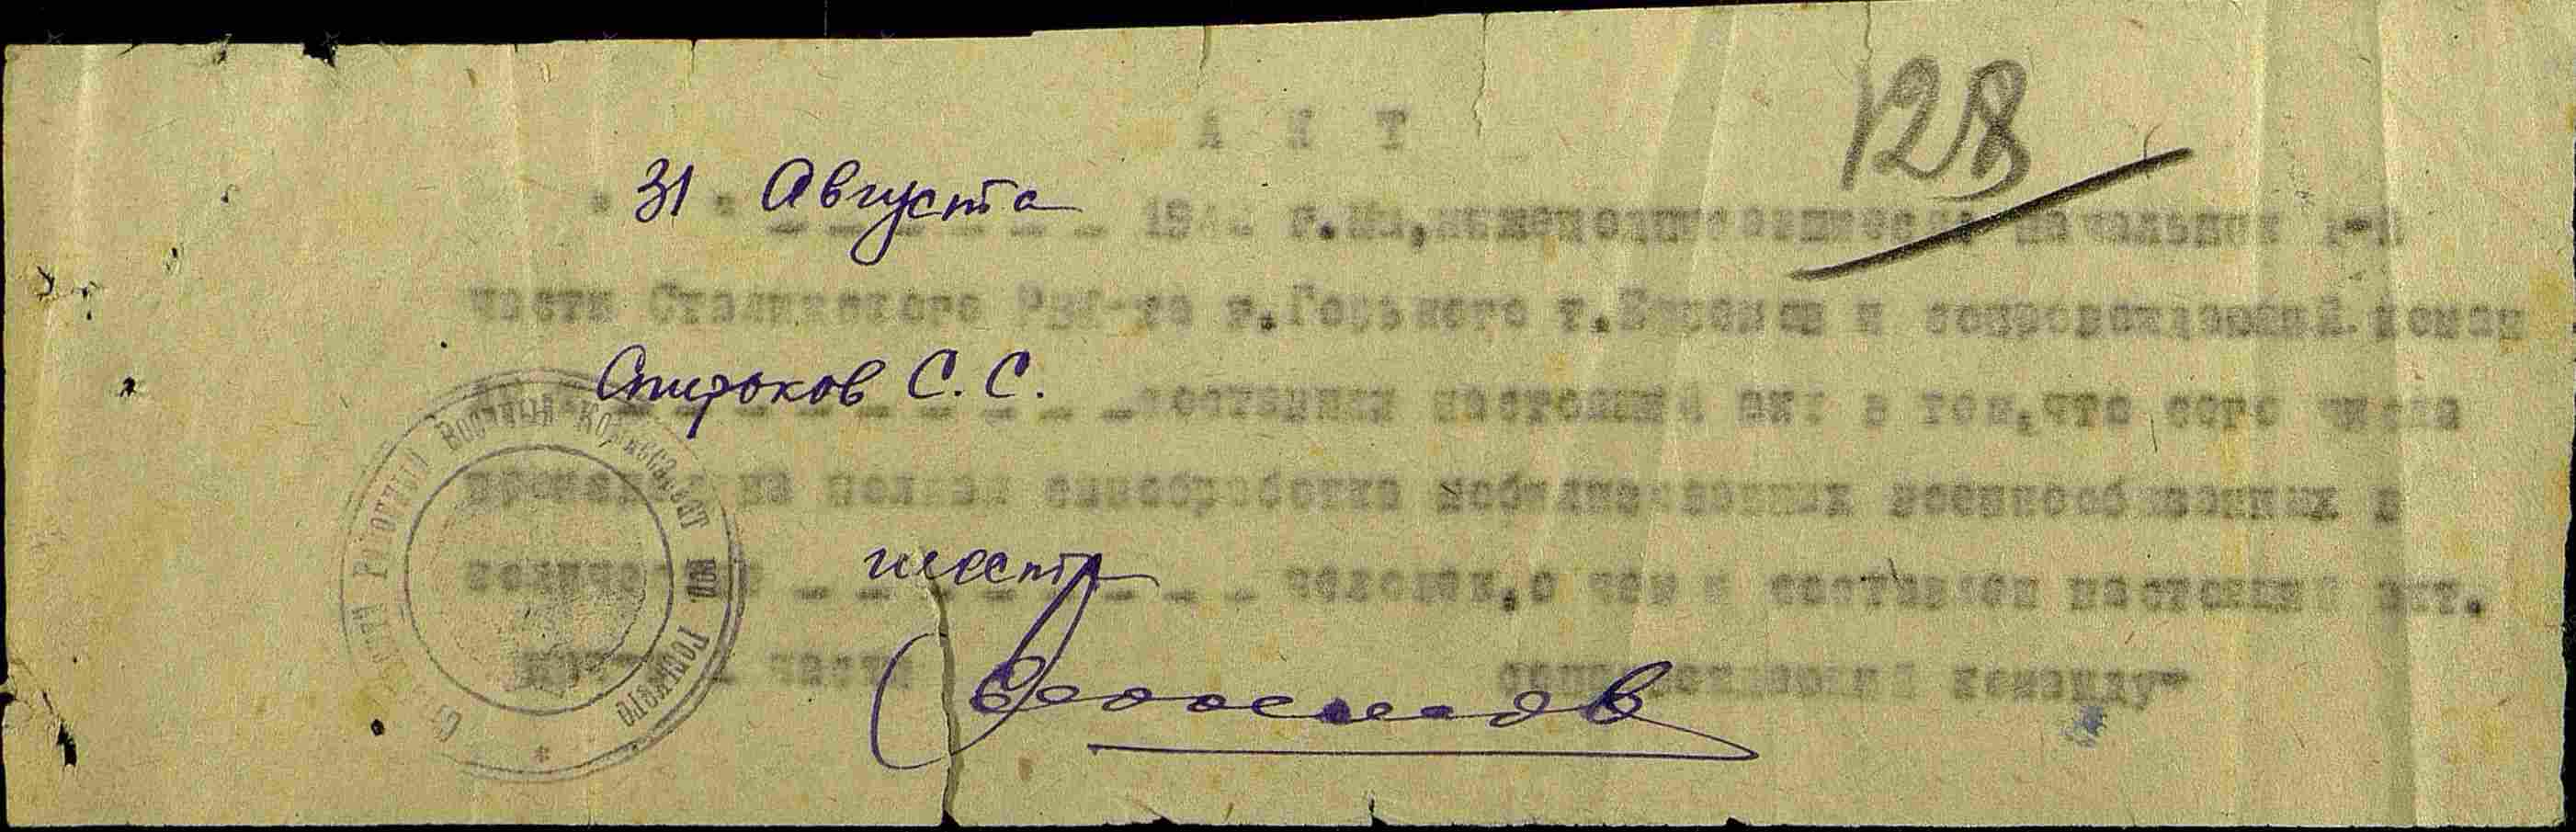 128
А К Т
" 31 " Августа 19 г. Мы, нижеподписавшиеся: начальник 1-й
части Сталинского РВК-та г.Горького т. и сопровождающий коман
Спирюков С. С. составили настоящий акт в том, что сего числа
проведена полная санобработка мобилизованных военнообязанных в
количестве шесть человек, о чем и составлен настоящий акт.
части сопровождающий команду-
Районный Военный Комиссариат гор. Горького